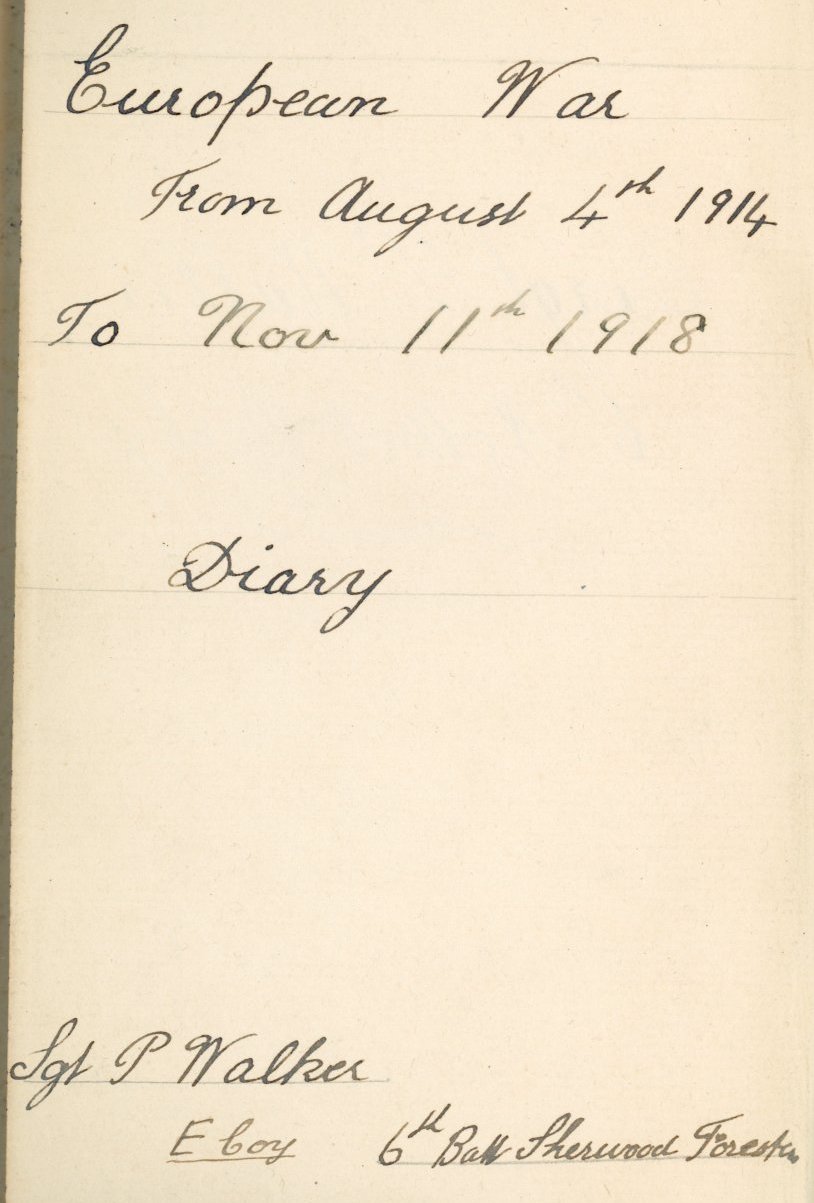 European War
From August 4th 1914
To Nov 11th 1918
Diary
Sgt P Walker
E Coy 6th Batt Sherwood Foresters